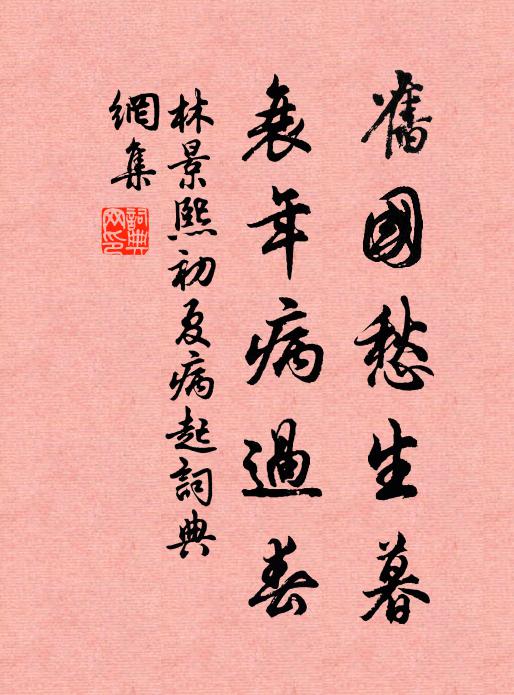 舊國愁生暮
衰年病過春
林景熙初夏病起詞典
網集
詞典網印